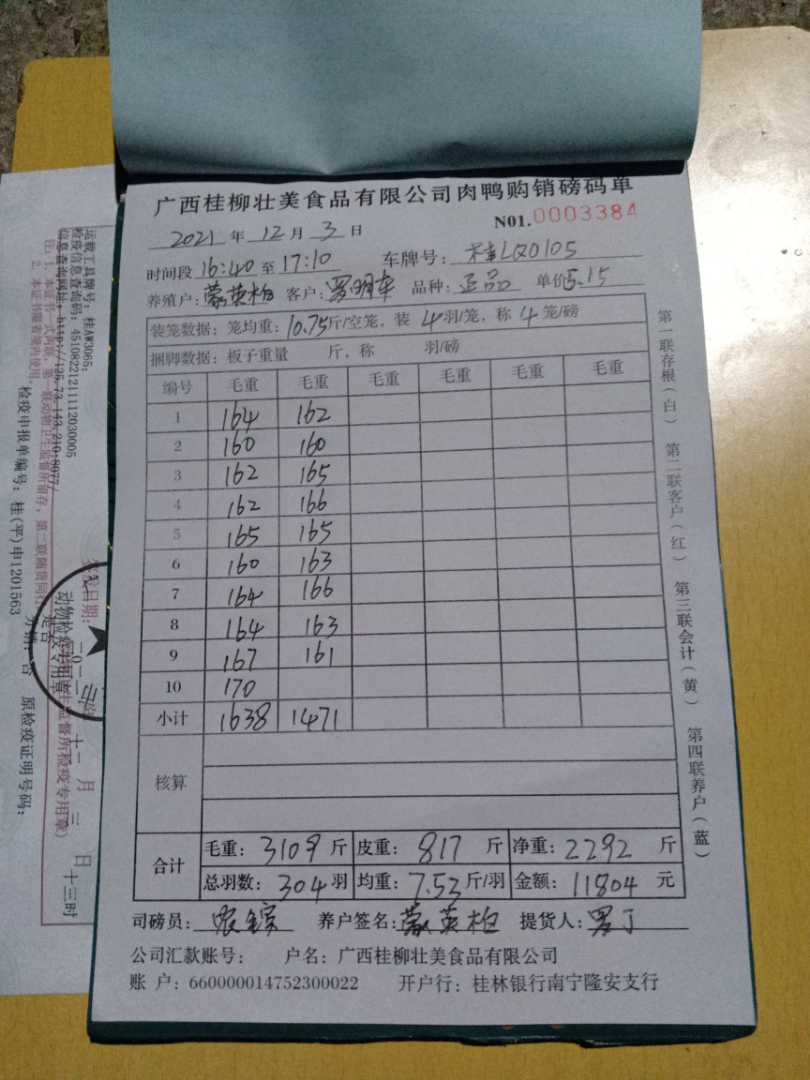 广西桂柳壮美食品有限公司肉鸭购销磅码单
N01.0003384
2021 年 12 月 3 日
时间段 16:40 至 17:10 车牌号: 桂LQ0105
养殖户: 蒙英柏 客户: 罗明车 品种: 正品 单价5.15
装笼数据: 笼均重: 10.75斤/空笼, 装 4羽/笼, 称 4 笼/磅
捆脚数据: 板子重量 斤, 称 羽/磅
编号 毛重 毛重 毛重 毛重 毛重 毛重
1 164 162
2 160 160
3 162 165
4 162 166
5 165 165
6 160 163
7 164 166
8 164 163
9 167 161
10 170
小计 1638 1471
核算
合计 毛重: 3109 斤 皮重: 817 斤 净重: 2292 斤
总羽数: 304 羽 均重: 7.53 斤/羽 金额: 11804 元
司磅员: 养户签名: 蒙英柏 提货人: 罗丁
公司汇款账号: 户名: 广西桂柳壮美食品有限公司
账 户: 660000014752300022 开户行: 桂林银行南宁隆安支行
第一联存根(白) 第二联客户(红) 第三联会计(黄) 第四联养户(蓝)
运载工具牌号: 桂AW3065;
检疫信息查询码: 45108221211112030005
信息查询网址: http://125.73.143.210:8077/
注: 1、本证书一式两联, 第一联动物卫生监督所留存, 第二联随货同行
2、本证书限省境内使用。
检疫申报单编号: 桂(平)申1201563
签发日期: 二〇二一 十二 月 三 日 十三时
原检疫证明号码: